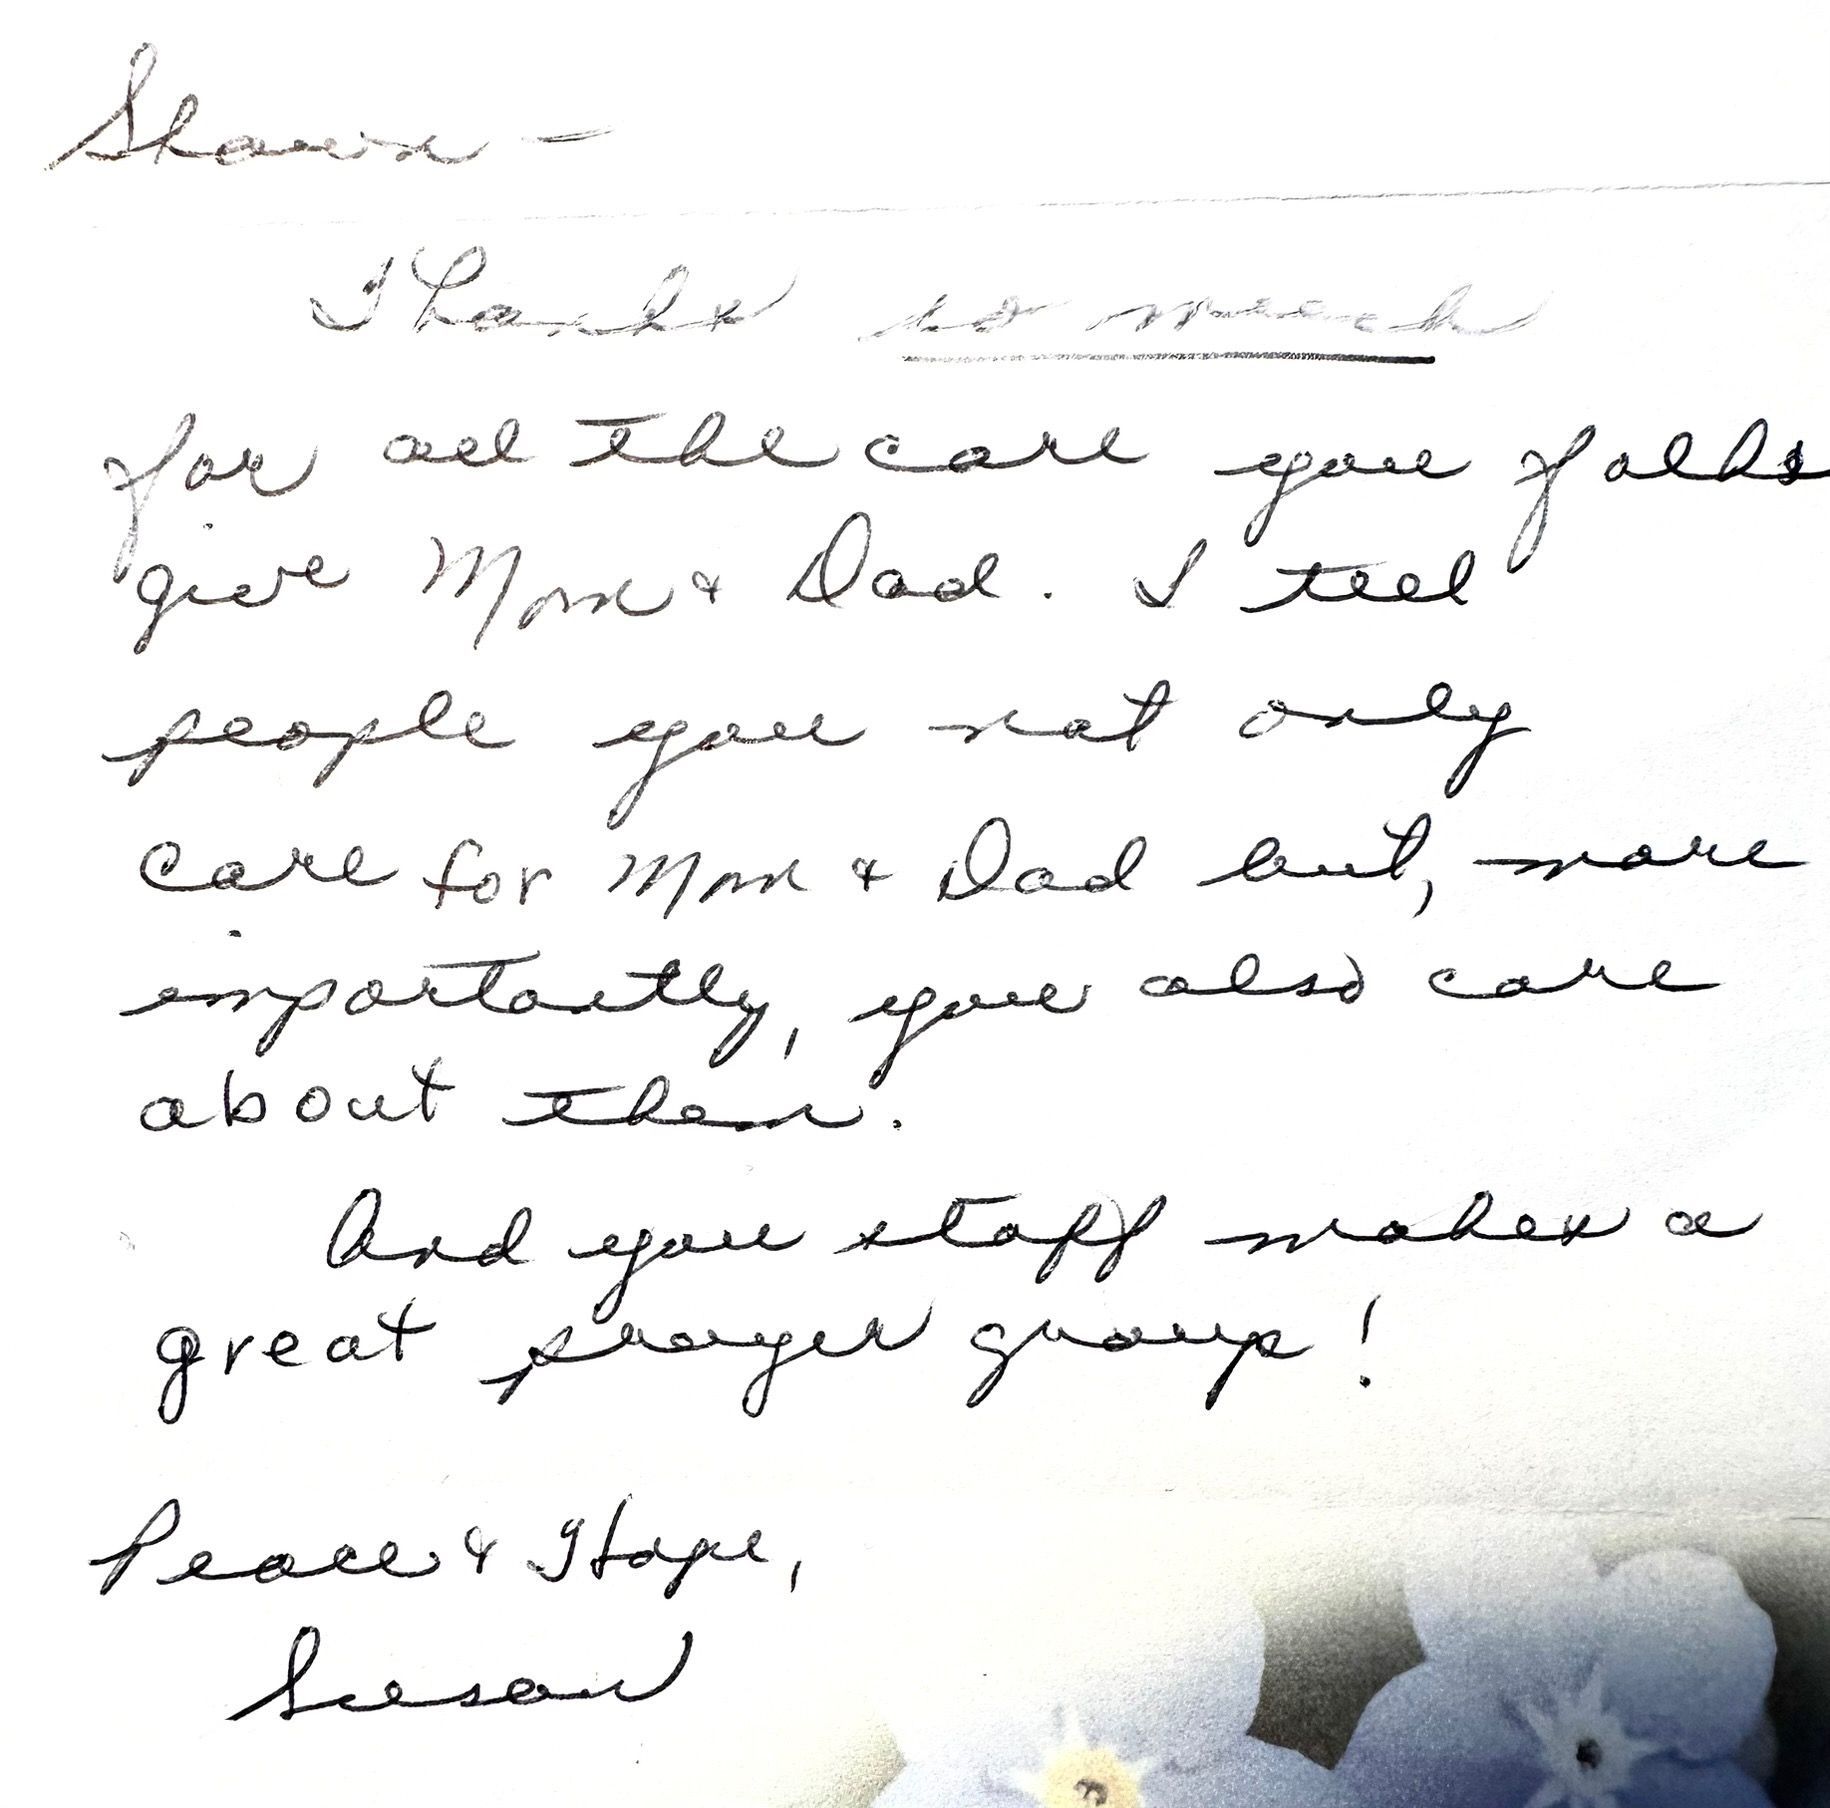 Shawn -
Thanks so much
for all the care you folks
give Mom & Dad. I tell
people you not only
care for Mom & Dad but, more
importantly, you also care
about them.
And you staff makes a
great prayer group!
Peace & Hope,
Susan